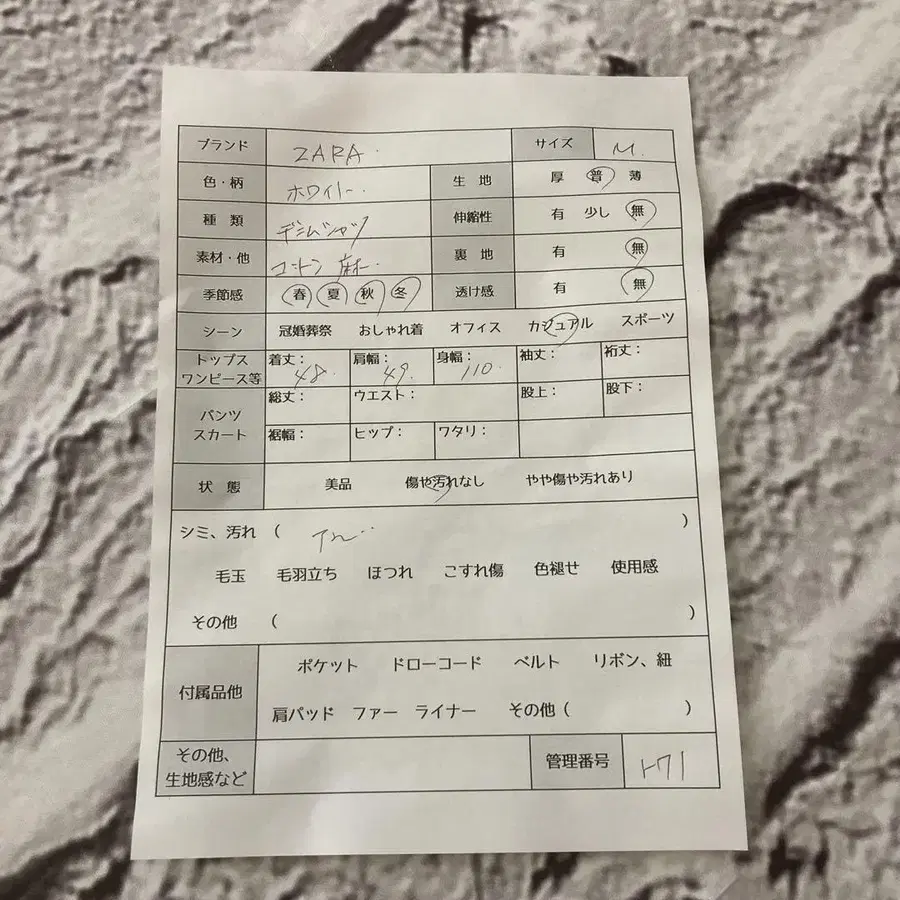 ブランド ZARA サイズ M.
色・柄 ホワイト 生地 厚 普 薄
種類 デニムシャツ 伸縮性 有 少し 無
素材・他 コットン 麻 裏地 有 無
季節感 春 夏 秋 冬 透け感 有 無
シーン 冠婚葬祭 おしゃれ着 オフィス カジュアル スポーツ
トップス ワンピース等 着丈: 48. 肩幅: 49. 身幅: 110. 袖丈: 裄丈:
パンツ スカート 総丈: ウエスト: 股上: 股下:
裾幅: ヒップ: ワタリ:
状態 美品 傷や汚れなし やや傷や汚れあり
シミ、汚れ ( )
毛玉 毛羽立ち ほつれ こすれ傷 色褪せ 使用感
その他 ( )
付属品他 ポケット ドローコード ベルト リボン、紐
肩パッド ファー ライナー その他 ( )
その他、
生地感など 管理番号